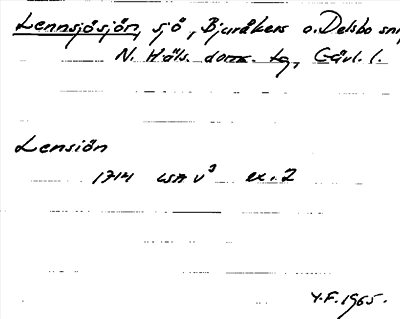 Lennsjösjön, sjö, Bjuråkers o. Delsbo snr
N. Häls. doms. tg, Gävl. l.
Lensiön
1714 LSA V³ ex. 2
Y.F. 1965.